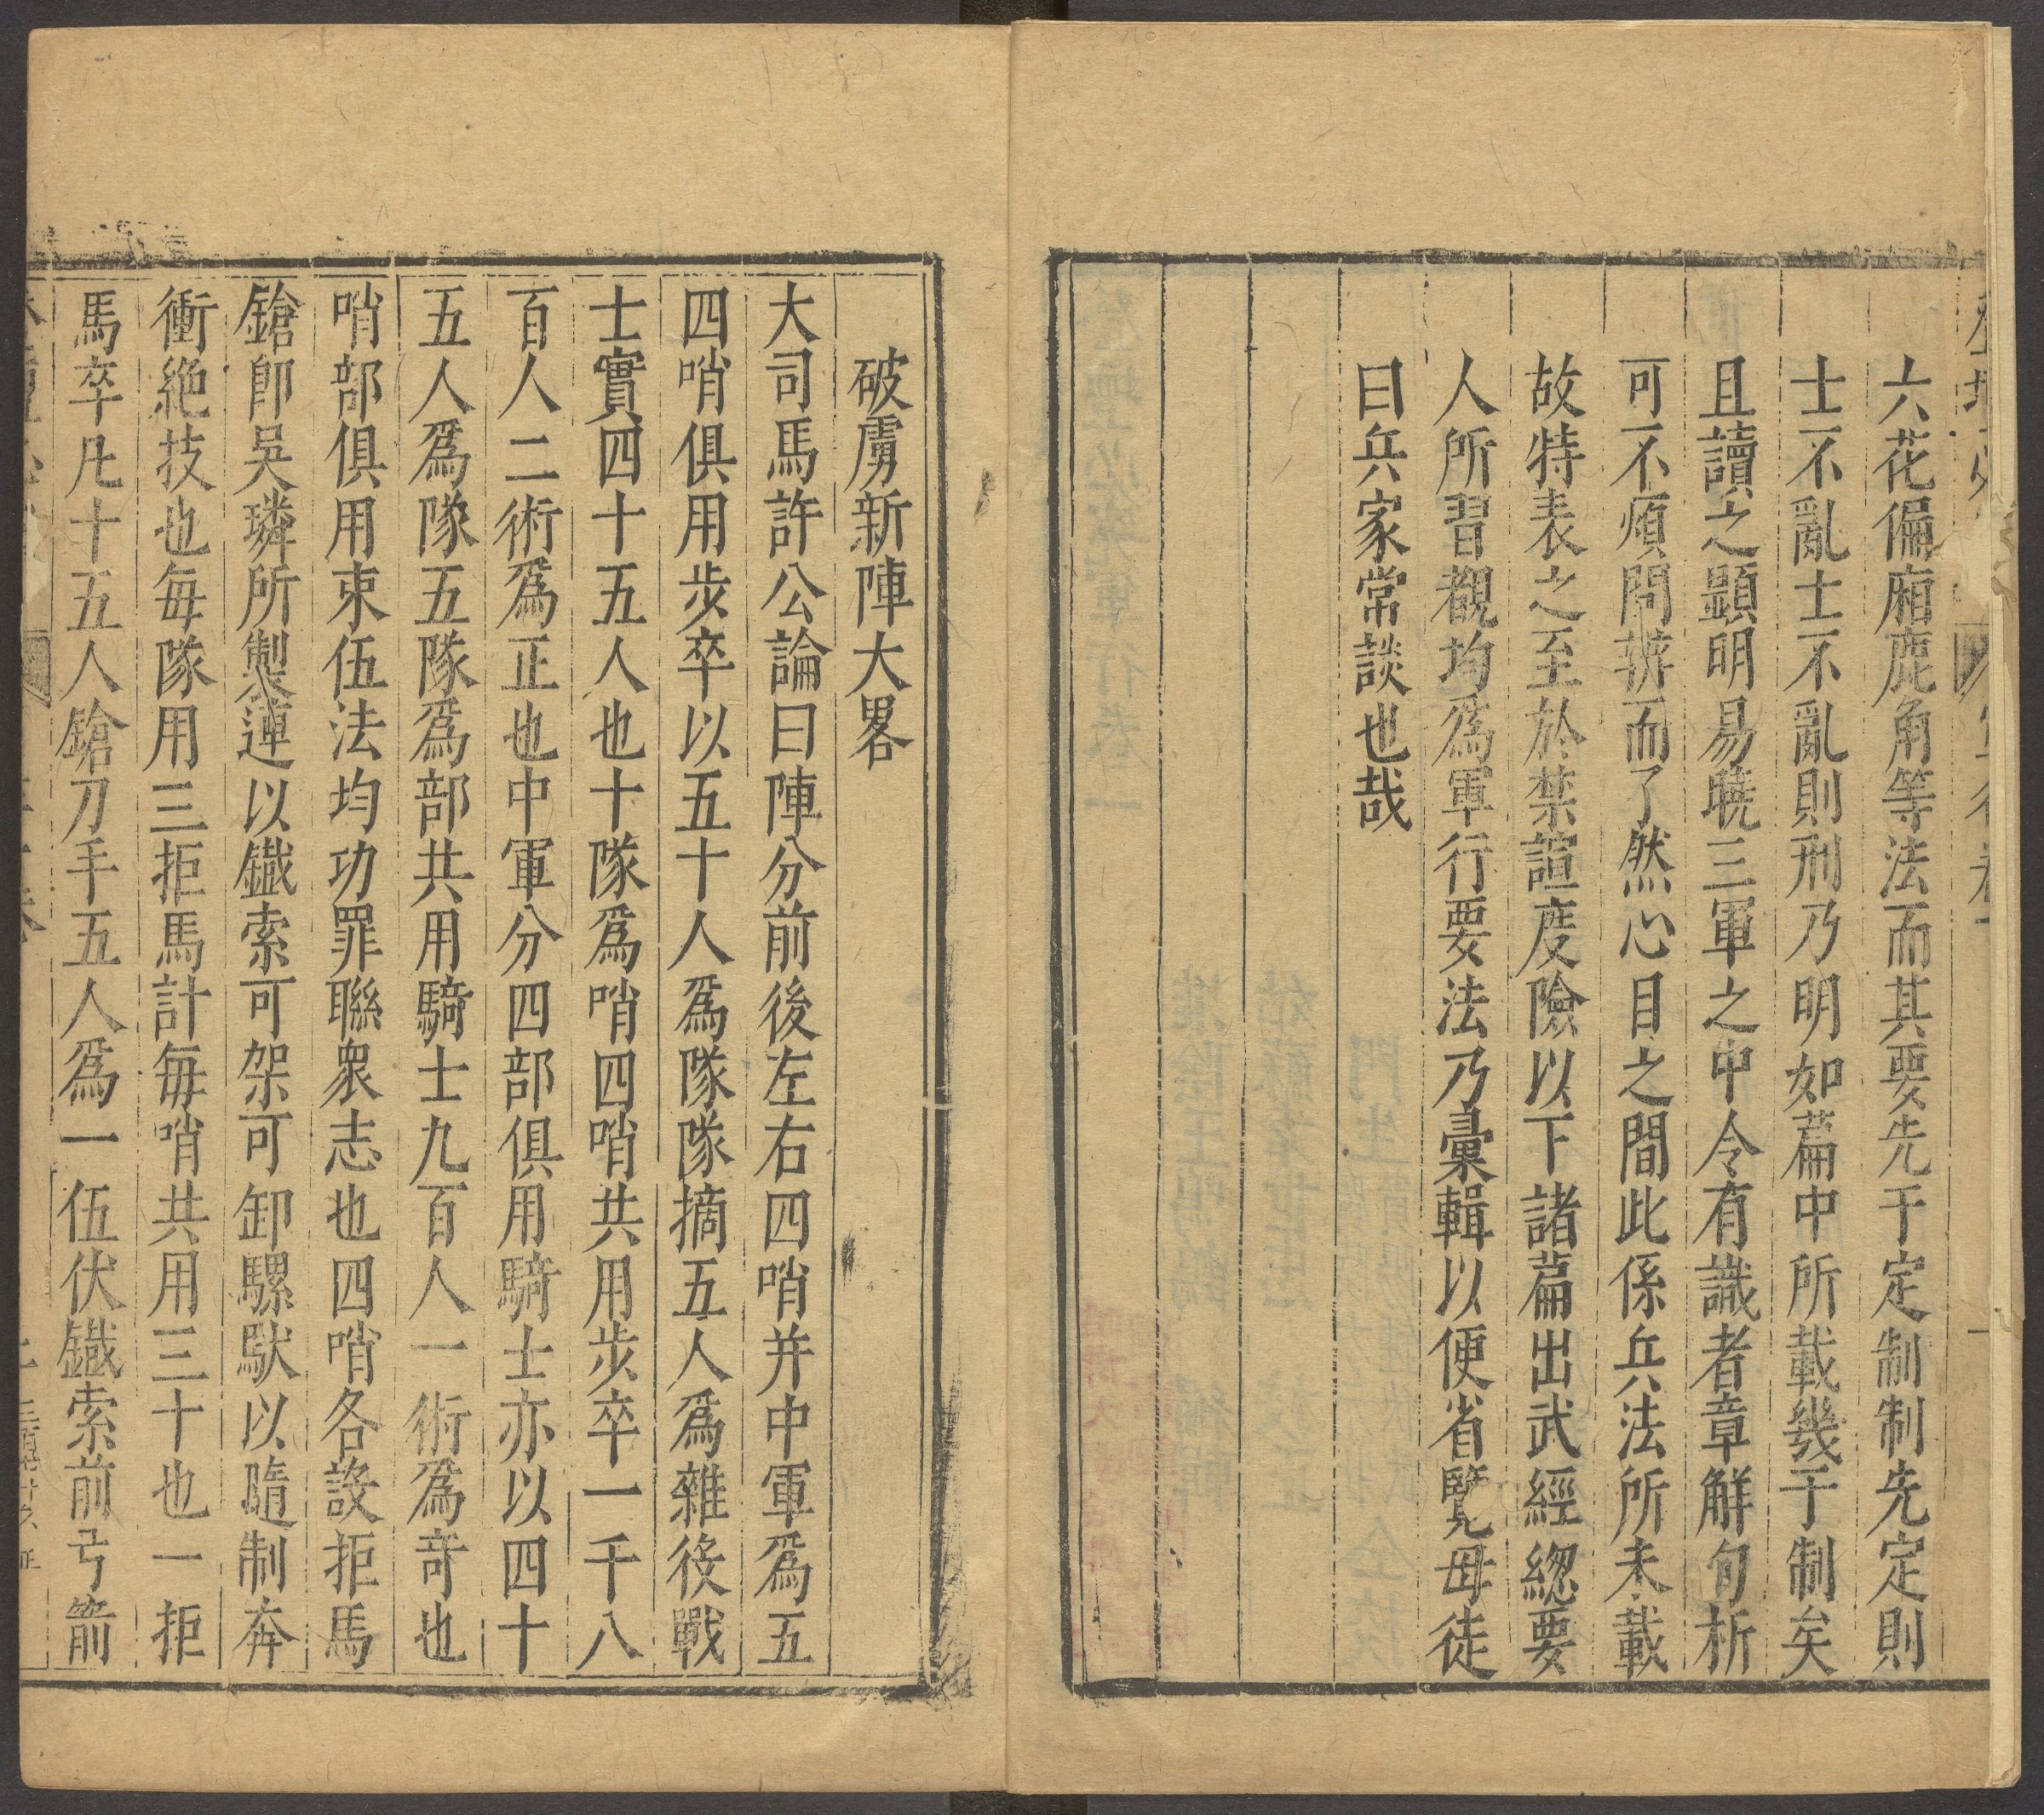 六花偏廂鹿角等法而其要先于定制制先定則
士不亂士不亂則刑乃明如篇中所載幾于制矣
且讀之顯明易曉三軍之中令有識者章解句析
可不煩問辨而了然心目之間此係兵法所未載
故特表之至於禁諠度險以下諸篇出武經緫要
人所習觀均爲軍行要法乃彙輯以便省覽毋徒
曰兵家常談也哉
破虜新陣大畧
大司馬許公論曰陣分前後左右四哨并中軍爲五
四哨俱用步卒以五十人爲隊隊摘五人爲雜後戰
士實四十五人也十隊爲哨四哨共用步卒一千八
百人二術爲正也中軍分四部俱用騎士亦以四十
五人爲隊五隊爲部共用騎士九百人一術爲奇也
哨部俱用束伍法均功罪聯衆志也四哨各設拒馬
鎗卽吳璘所製連以鐵索可架可卸騾馱以隨制奔
衝絶技也每隊用三拒馬計每哨共用三十也一拒
馬卒凡十五人鎗刀手五人爲一伍伏鐵索前弓箭